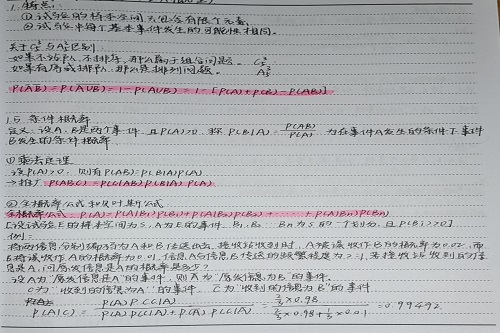 1. 特点:
① 试验的样本空间只包含有限个元素
② 试验中每个基本事件发生的可能性相同。
关于C₅³与A₅³区别
如果不站队、不排序, 那么属于组合问题。 C₅³
如果有序或排队, 那么是排列问题。 A₅³
P(ĀB̄) = P(A∪B) = 1-P(A∪B) = 1-[P(A)+P(B)-P(AB)]
1.5 条件概率
定义: 设A、B是两个事件, 且P(A)>0, 称 P(B|A) = P(AB)/P(A) 为在事件A发生的条件下事件
B发生的条件概率
① 乘法定理
设P(A)>0, 则有P(AB)=P(B|A)P(A)
→推广 P(ABC)=P(C|AB)P(B|A)P(A)
② 全概率公式和贝叶斯公式
全概率公式: P(A)=P(A|B₁)P(B₁)+P(A|B₂)P(B₂)+······+P(A|Bn)P(Bn)
[设试验E的样本空间为S, A为E的事件, B₁、B₂···Bn为S的一个划分, 且P(Bi)>0]
例:
将两信息分别编码为A和B传送出去, 接收站收到时, A被误收作B的概率为0.02, 而
B被误收作A的概率为0.01, 信息A与信息B传送的频繁程度为2:1, 若接收站收到的信
息是A, 问原发信息是A的概率是多少?
设A为"原发信息是A"的事件, 则Ā为"原发信息为B"的事件。
C为"收到的信息为A"的事件, C̄为"收到的信息为B"的事件
P(A|C) = P(A)P(C|A) / P(A)P(C|A)+P(Ā)P(C|Ā) = ⅔×0.98 / ⅔×0.98+⅓×0.01 = 0.99492